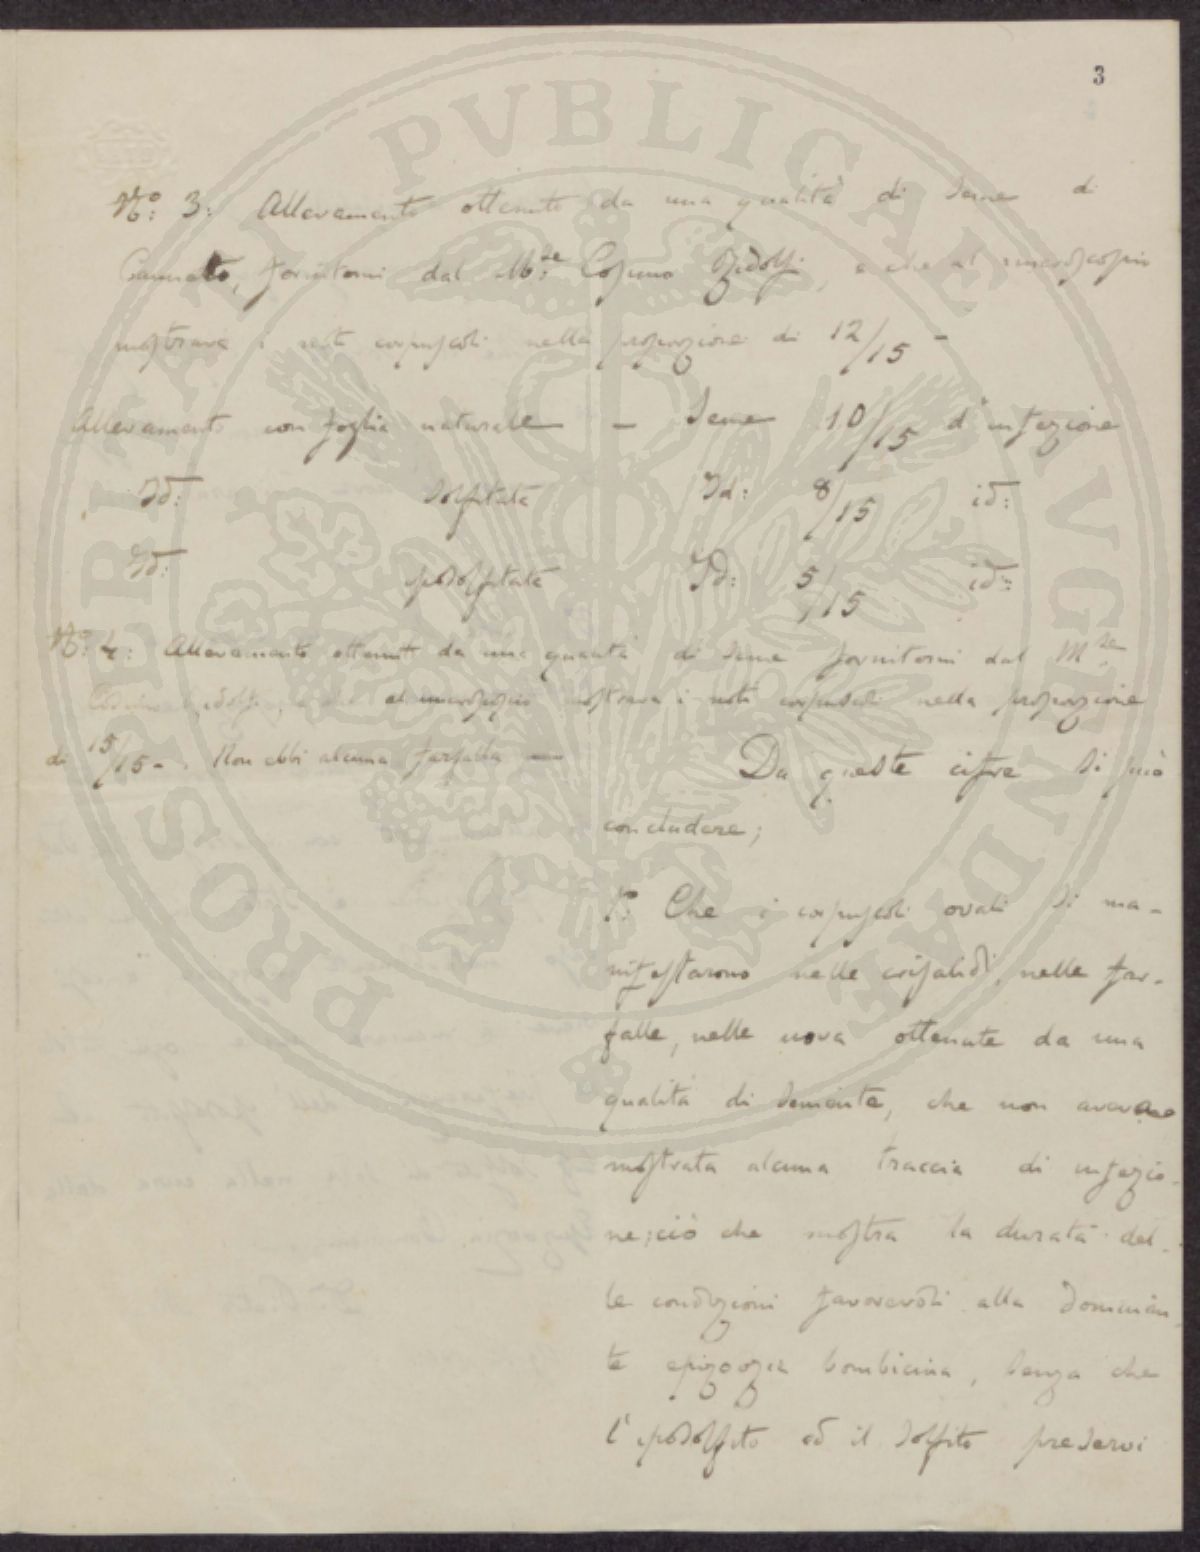 3
N.o 3: Allevamento ottenuto da una qualità di seme di
fornitomi dal M.se Cosimo Ridolfi, e che al microscopio
mostrava i noti corpuscoli nella proporzione di 12/15 -
Allevamento con foglia naturale - Seme 10/15 d'infezione
Id: solfitata Id: 8/15 id:
Id: iposolfitata Id: 5/15 id:
N.o 4: Allevamento ottenuto da una quantà di seme fornitomi dal M.se
Cosimo Ridolfi, e che al microscopio mostrava i noti corpuscoli nella proporzione
di 15/15 - . Non ebbi alcuna farfalla —
Da queste cifre si può
concludere;
1.o Che i corpuscoli ovali si ma-
nifestarono nelle crisalidi, nelle far-
falle, nelle uova ottenute da una
qualità di semente, che non avevane
mostrata alcuna traccia di infezio-
ne; ciò che mostra la durata del-
le condizioni favorevoli alla dominan-
te epizoozia bombicina, senza che
l'iposolfito ed il solfito preservi
PROSPERITATI PVBLICAE AVGENDAE